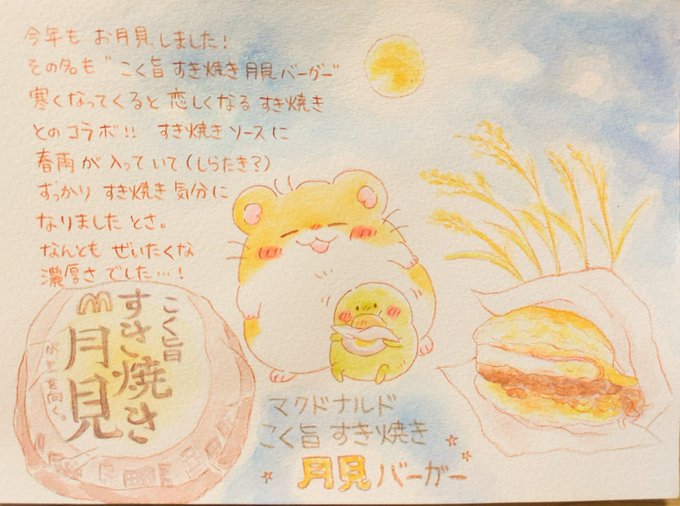 今年も お月見しました!
その名も"こく旨 すき焼き 月見 バーガー"
寒くなってくると 恋しくなる すき焼き
とのコラボ!! すき焼きソースに
春雨が入っていて(しらたき?)
すっかり すき焼き 気分に
なりましたとさ。
なんとも ぜいたくな
濃厚さでした…!
こく旨
すき焼き
月見
マクドナルド
こく旨 すき焼き
月見 バーガー